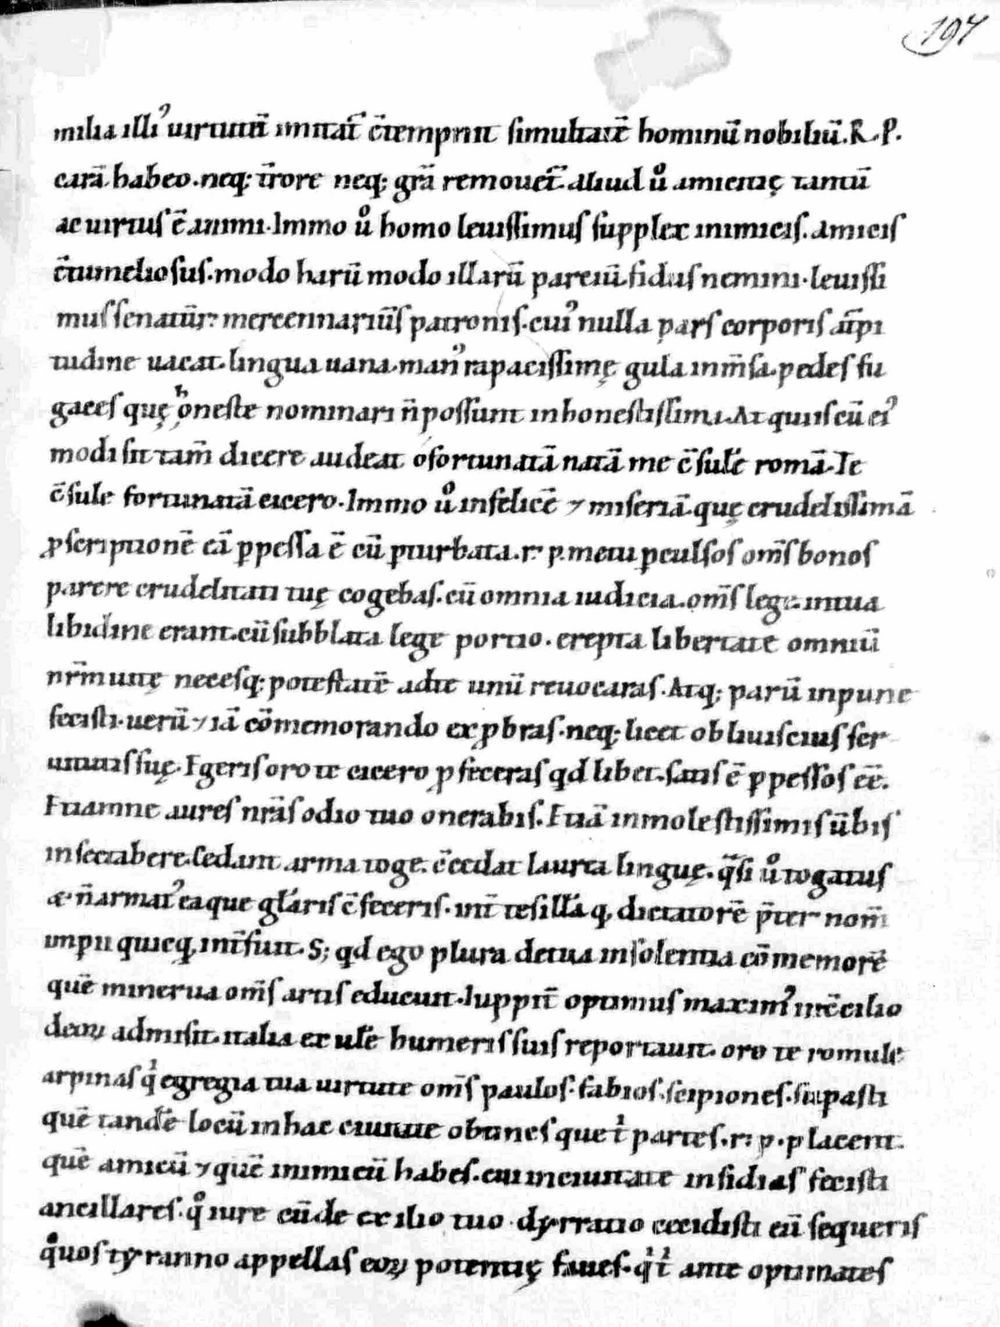 197
milia illi᾽ uirtutū imitat̄ c̄tempnit simultatē hominū nobiliū. R. P.
carā habeo. neq; t̄rore neq; grā remouet̄. aliud ů amicitię tantū
ac uirtus ē animi. Immo ů homo leuissimus supplex inimicis. amicis
c̄tumeliosus. modo harū modo illarū parciū. fidus nemini. leuissi
mus senatūr: mercennariūs patronis. cui᾽ nulla pars corporis at̄pi
tudine uacat. lingua uana. man᾽ rapacissimę gula inm̄sa. pedes fu
gaces quę honeste nominari n̄ possunt inhonestissima. At quis cū ei᾽
modi sit tam̄ dicere audeat o fortunatā natā me c̄sulē romā. Te
c̄sule fortunatā cicero. Immo ů infelicē ⁊ miseriā. quę crudelissimā
ꝓscriptionē eā ꝑpessa ē cū ꝑturbata. r: p. metu ꝑculsos om̄s bonos
parere crudelitati tuę cogebas. cū omnia iudicia. om̄s lege intua
libidine erant. cū subblata lege portio. erepta libertate omniū
nr̄m uitę necesq; potestatē adte unū reuocaras. Atq; parū inpune
fecisti. uerū ⁊ iā cōmemorando exꝓbras. neq; licet obliuisci uis ser
uituis suę. Egeris oro te cicero ꝓfeceras qd̄ libet. satis ē ꝑpessos eē.
Etiamne aures nrās odio tuo onerabis. Etiā inmolestissimis ūbis
insectabere. Cedant arma toge. c̄cedat laurea linguę. q̄si ů togatus
æ n̄ armat᾽ ea que glār̄is c̄feceris. int̄ te sillā q; dictatorē p̄ter nom̄
impii quicq; int̄fuit. S; qd̄ ego plura detua insolentia cōmemorē
quē minerua om̄s artis educuit. Iuppit̄ optimus maxim᾽ incc̄ilio
deoꝝ admisit. italia exulē humeris suis reportauit. oro te romule
arpinas qͥ egregia tua uirtute om̄s paulos. fabios. scipiones. supasti
quē tandē locū inhac ciuitate obtines que tͥ partes. r: p. placent.
quē amicū ⁊ quē inimicū habes. cui inciuitate insidias fecisti
ancillares. qͦ iure cūde exilio tuo dyrratio cecidisti eū sequeris
qͦuos tyranno appellas eoꝝ potentię faues. qͥ tͥ ante optimates